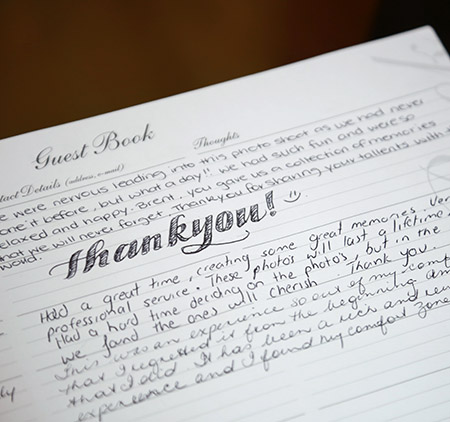 Guest Book
Thoughts
tact Details (address, e-mail)
e were nervous leading into this photo shoot as we had never
one it before, but what a day!! We had such fun and were so
elaxed and happy. Brent, you gave us a collection of memories
hat we will never forget. Thankyou for sharing your tallents with
world.
Thankyou!
Had a great time, creating some great memories. Ver
professional service. These photos will last a lifetime.
Had a hard time deciding on the photo's, but in the
we fond the ones will cherish. Thank you.
This was an experience so out of my comf
that I regretted it from the beginning am
that I did. It has been a rich and
experience and I found my comfort zone